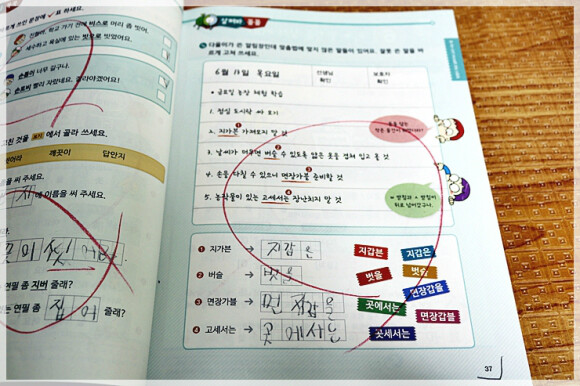 르게 쓰인 문장에 ✓표 하세요.
학교 가기 전에 비스로 머리 좀 빗어.
세수하고 욕실에 있는 빗으로 빗었어요.
손톱이 너무 길구나.
빨리 자랐네요. 깎아야겠어요!
것을 보기 에서 골라 쓰세요.
깨끗이
답안지
써 주세요.
재 에 이름을 써 주세요.
꽃 의
연필 좀 지버 줄래?
는 연필 좀 집 어 줄래?
다음이가 쓴 알림장인데 맞춤법에 맞지 않은 말들이 있어요. 잘못 쓴 말을 바
르게 고쳐 쓰세요.
6월 17일 목요일
선생님
확인
보호자
확인
• 금요일 농장 체험 학습
1. 점심 도시락 싸 오기
2. 지가븐 가져오지 말 것
3. 날씨가 더우면 버슬 수 있도록 얇은 옷을 겹쳐 입고 올 것
4. 손을 다칠 수 있으니 면장가블 준비할 것
5. 농작물이 있는 고세서는 장난치지 말 것
1 지가븐 → 지갑은
2 버슬 → 벗을
3 면장가블 → 면장갑을
4 고세서는 → 곳에서는
지갑븐
지갑은
벗을
벗슬
면장갑을
곳에서는
면장갑블
곳세서는
37